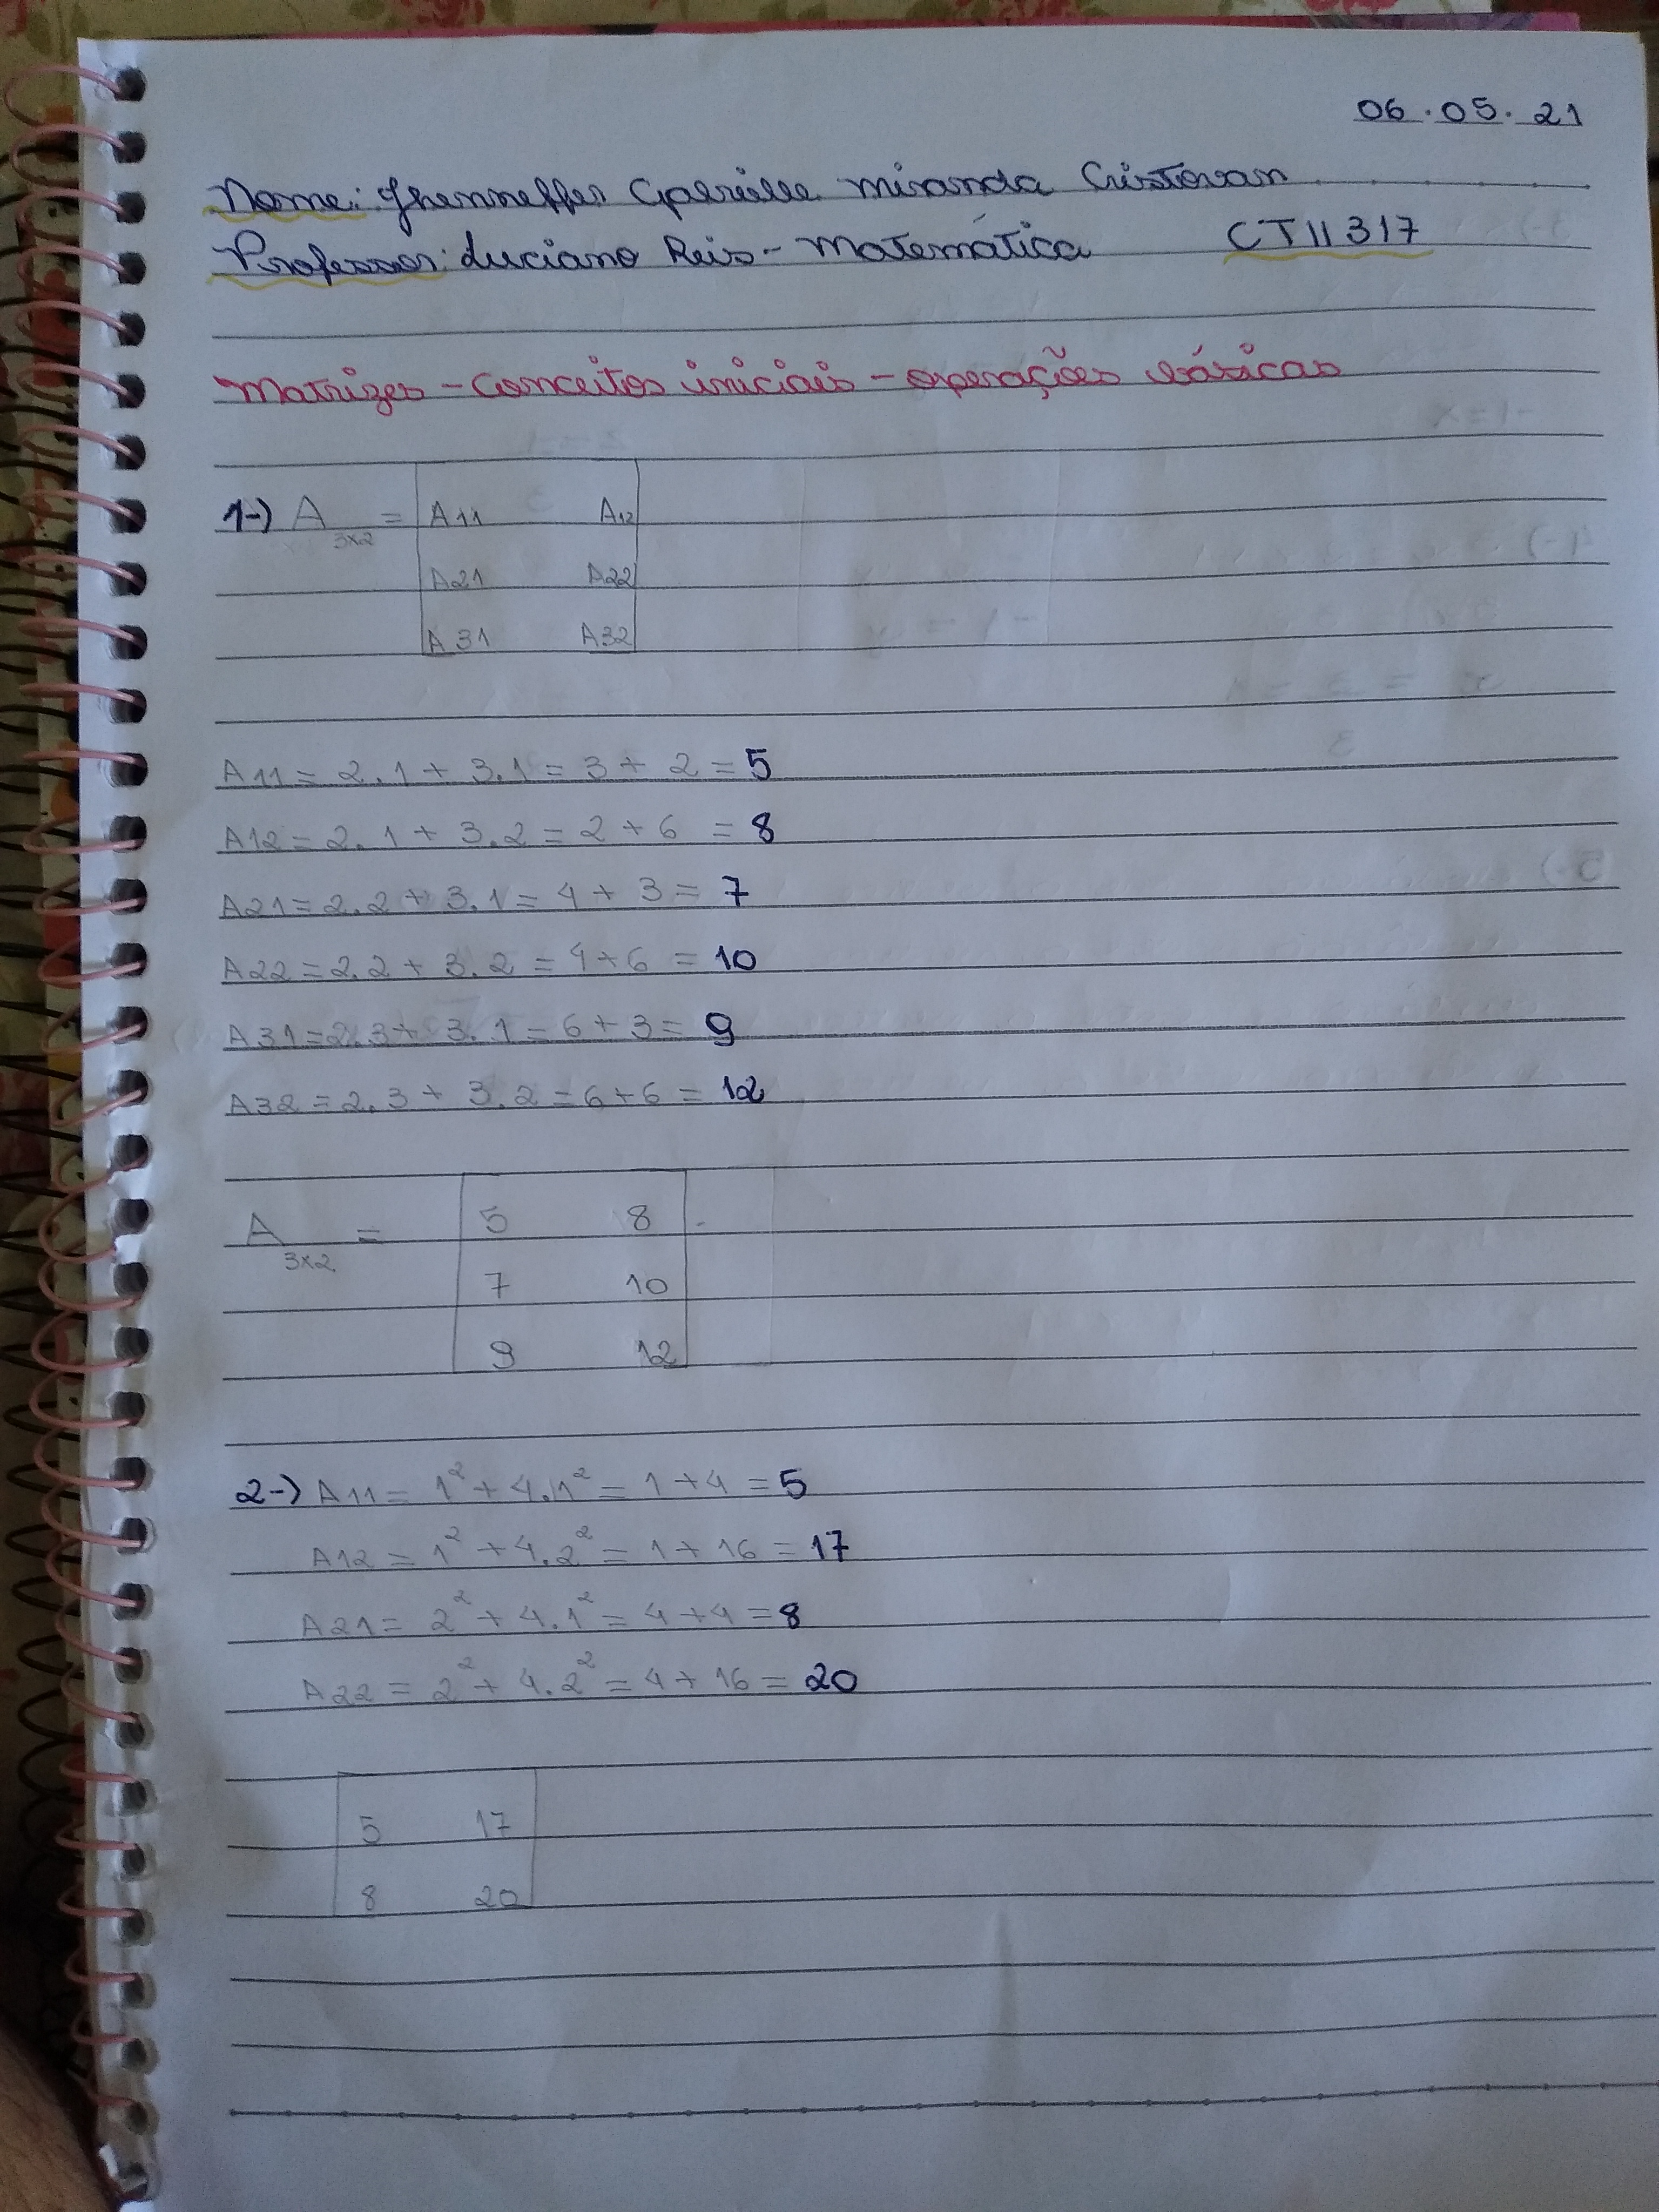 06.05.21
Nome: Jhenneffer Gabrielle Miranda Cristovam
Professor: Luciano Reis - Matemática CTII317
Matrizes - Conceitos iniciais - operações básicas
1-) A 3x2 = A11 A12
A21 A22
A31 A32
A11 = 2.1 + 3.1 = 3 + 2 = 5
A12 = 2.1 + 3.2 = 2 + 6 = 8
A21 = 2.2 + 3.1 = 4 + 3 = 7
A22 = 2.2 + 3.2 = 4 + 6 = 10
A31 = 2.3 + 3.1 = 6 + 3 = 9
A32 = 2.3 + 3.2 = 6 + 6 = 12
A 3x2 = 5 8
7 10
9 12
2-) A11 = 1² + 4.1² = 1 + 4 = 5
A12 = 1² + 4.2² = 1 + 16 = 17
A21 = 2² + 4.1² = 4 + 4 = 8
A22 = 2² + 4.2² = 4 + 16 = 20
5 17
8 20